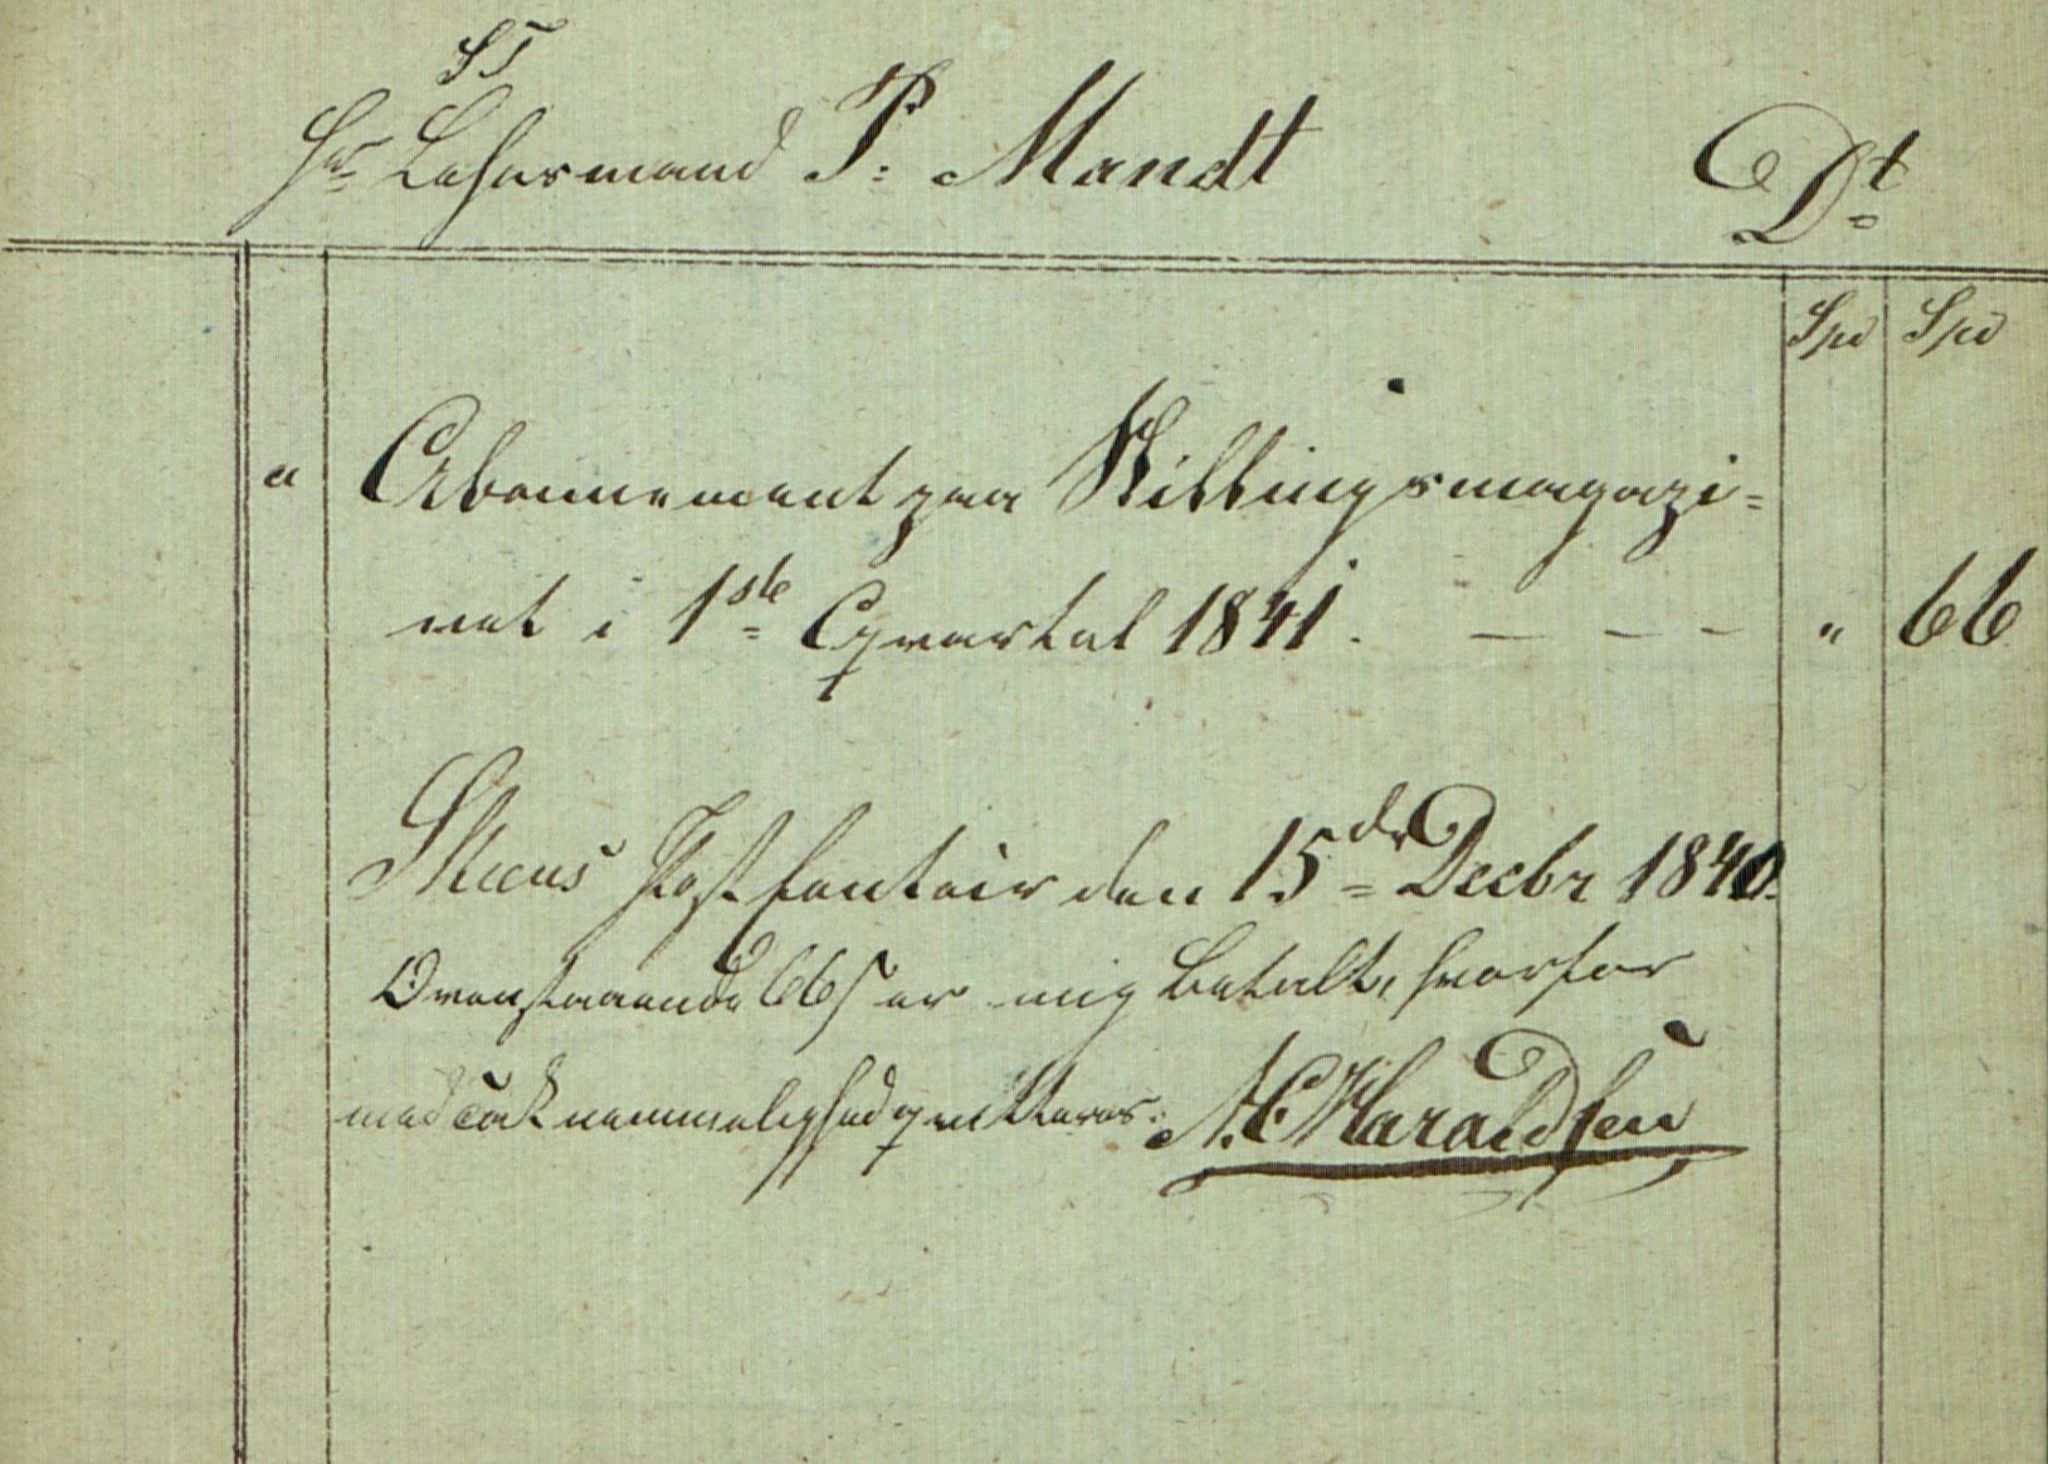 ST
Hr Lehnsmand P: Mandt Dt
Spd Spd
a Abonnement paa Skillingsmagazi=
net i 1ste Qvartal 1841. — — — " 66
Skeens Postcontoir den 15de Decbr 1840.
Ovenstaaende 66 s er mig betalt, hvorfor
med Taknemmelighed qvitteres: N. C. Haraldsen